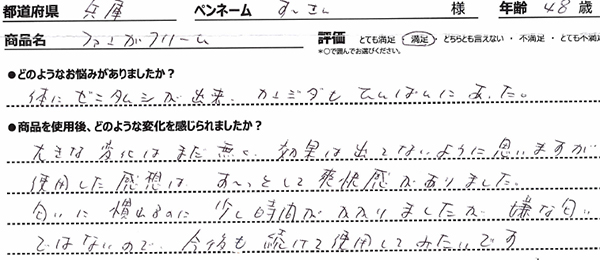 都道府県 兵庫 ペンネーム すーさん 様 年齢 48 歳
商品名 ファンガクリーム 評価 とても満足・満足・どちらとも言えない・不満足・とても不満
*○で囲んでお選びください。
●どのようなお悩みがありましたか?
体にゼニタムシが出来、カンジダもひんぱんにあった。
●商品を使用後、どのような変化を感じられましたか?
大きな変化はまだ無く、効果は出てないように思いますが
使用した感想は、すーっとして爽快感がありました。
匂いに慣れるのに少し時間がかかりましたが、嫌な匂い
ではないので、今後も続けて使用してみたいです